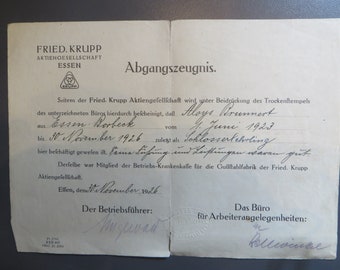 FRIED. KRUPP
AKTIENGESELLSCHAFT
ESSEN
Abgangszeugnis.
Seitens der Fried. Krupp Aktiengesellschaft wird unter Beidrückung des Trockenstempels
des unterzeichneten Büros hierdurch bescheinigt, daß Aloys
aus Essen Borbeck vom 9. Juni 1923
bis 30. November 1926 zuletzt als Schlosserlehrling
hier beschäftigt gewesen ist. Seine Führung und Leistungen waren gut.
Derselbe war Mitglied der Betriebs-Krankenkasse für die Gußstahlfabrik der Fried. Krupp
Aktiengesellschaft.
Essen, den 30. November 1926
Der Betriebsführer:
Das Büro
für Arbeiterangelegenheiten: